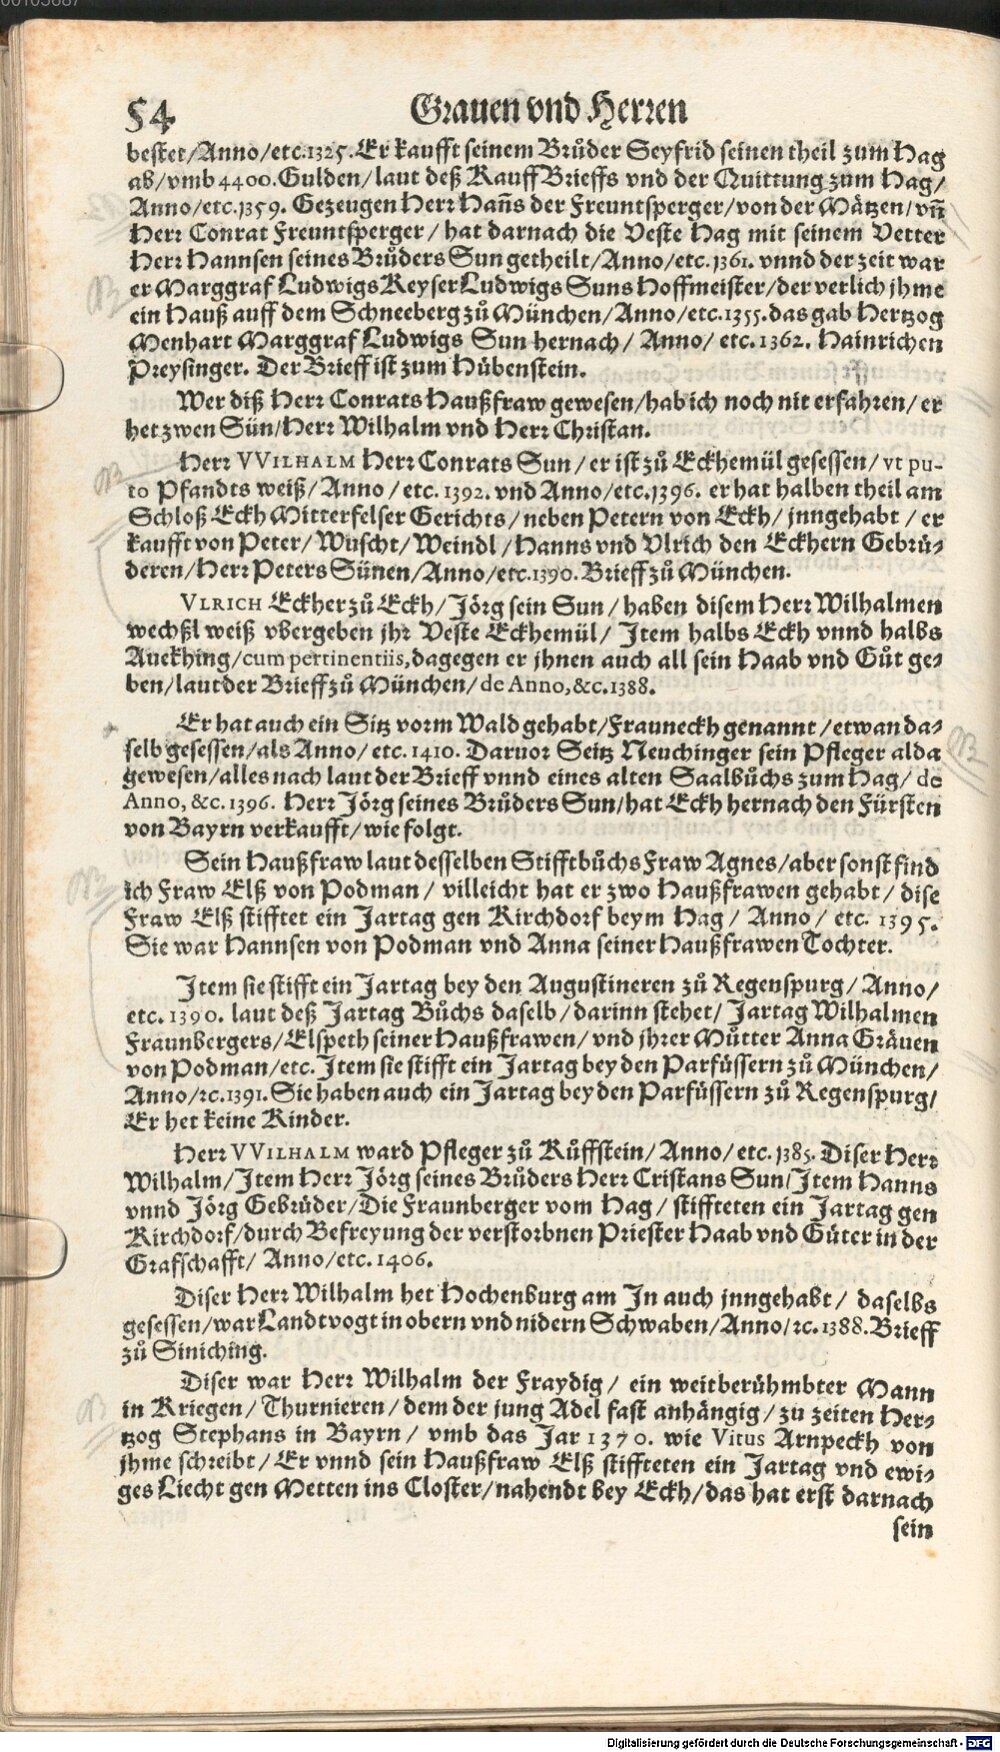 54 Grauen vnd Herren
bestet/Anno/etc.1325. Er kaufft seinem Brůder Seyfrid seinen theil zum Hag
ab/vmb 4400. Gulden/laut deß Kauff Brieffs vnd der Quittung zum Hag/
Anno/etc.1359. Gezeugen Herr Hañs der Freuntsperger/von der Mätzen/vñ
Herr Conrat Freuntsperger/hat darnach die Veste Hag mit seinem Vetter
Herr Hannsen seines Brůders Sun getheilt/Anno/etc.1361. vnnd der zeit war
er Marggraf Ludwigs Keyser Ludwigs Suns Hoffmeister/der verlich jhme
ein Hauß auff dem Schneeberg zů München/Anno/etc.1355. das gab Hertzog
Menhart Marggraf Ludwigs Sun hernach/ Anno/ etc.1362. Hainrichen
Preysinger. Der Brieff ist zum Hübenstein.
Wer diß Herr Conrats Haußfraw gewesen/hab ich noch nit erfahren/er
het zwen Sün/Herr Wilhalm vnd Herr Christan.
Herr VVILHALM Herr Conrats Sun/er ist zů Eckhemül gesessen/vt pu-
to Pfandts weiß/Anno/etc.1392. vnd Anno/etc.1396. er hat halben theil am
Schloß Eckh Mitterfelser Gerichts/neben Petern von Eckh/jnngehabt/er
kaufft von Peter/Wuscht/Weindl/Hanns vnd Vlrich den Eckhern Gebrü-
deren/Herr Peters Sünen/Anno/etc.1390. Brieff zů München.
VLRICH Eckher zů Eckh/Jörg sein Sun/haben disem Herr Wilhalmen
wechßl weiß vbergeben jhr Veste Eckhemül/ Item halbs Eckh vnnd halbs
Auekhing/cum pertinentiis, dagegen er jhnen auch all sein Haab vnd Gůt ge-
ben/laut der Brieff zů München/de Anno,&c.1388.
Er hat auch ein Sitz vorm Wald gehabt/Frauneckh genannt/etwan da-
selb gesessen/als Anno/etc.1410. Daruor Seitz Neuchinger sein Pfleger alda
gewesen/alles nach laut der Brieff vnnd eines alten Saalbůchs zum Hag/de
Anno,&c.1396. Herr Jörg seines Brůders Sun/hat Eckh hernach den Fürsten
von Bayrn verkaufft/wie folgt.
Sein Haußfraw laut desselben Stifftbůchs Fraw Agnes/aber sonst find
ich Fraw Elß von Podman/villeicht hat er zwo Haußfrawen gehabt/dise
Fraw Elß stifftet ein Jartag gen Kirchdorf beym Hag/ Anno/ etc. 1395.
Sie war Hannsen von Podman vnd Anna seiner Haußfrawen Tochter.
Item sie stifft ein Jartag bey den Augustineren zů Regenspurg/Anno/
etc.1390. laut deß Jartag Bůchs daselb/darinn stehet/Jartag Wilhalmen
Fraunbergers/Elspeth seiner Haußfrawen/vnd jhrer Můtter Anna Gräuen
von Podman/etc. Item sie stifft ein Jartag bey den Parfüssern zů München/
Anno/ꝛc.1391. Sie haben auch ein Jartag bey den Parfüssern zů Regenspurg/
Er het keine Kinder.
Herr VVILHALM ward Pfleger zů Kůffstein/Anno/etc.1385. Diser Herr
Wilhalm/Item Herr Jörg seines Brůders Herr Cristans Sun/Item Hanns
vnnd Jörg Gebrüder/Die Fraunberger vom Hag/ stiffteten ein Jartag gen
Kirchdorf/durch Befreyung der verstorbnen Priester Haab vnd Güter in der
Grafschafft/ Anno/etc.1406.
Diser Herr Wilhalm het Hochenburg am In auch jnngehabt/ daselbs
gesessen/war Landtvogt in obern vnd nidern Schwaben/Anno/ꝛc.1388. Brieff
zů Siniching.
Diser war Herr Wilhalm der Fraydig/ ein weitberühmbter Mann
in Kriegen/Thurnieren/dem der jung Adel fast anhängig/zu zeiten Her-
tzog Stephans in Bayrn/ vmb das Jar 1370. wie Vitus Arnpeckh von
jhme schreibt/Er vnnd sein Haußfraw Elß stiffteten ein Jartag vnd ewi-
ges Liecht gen Metten ins Closter/nahendt bey Eckh/das hat erst darnach
sein
Digitalisierung gefördert durch die Deutsche Forschungsgemeinschaft - DFG